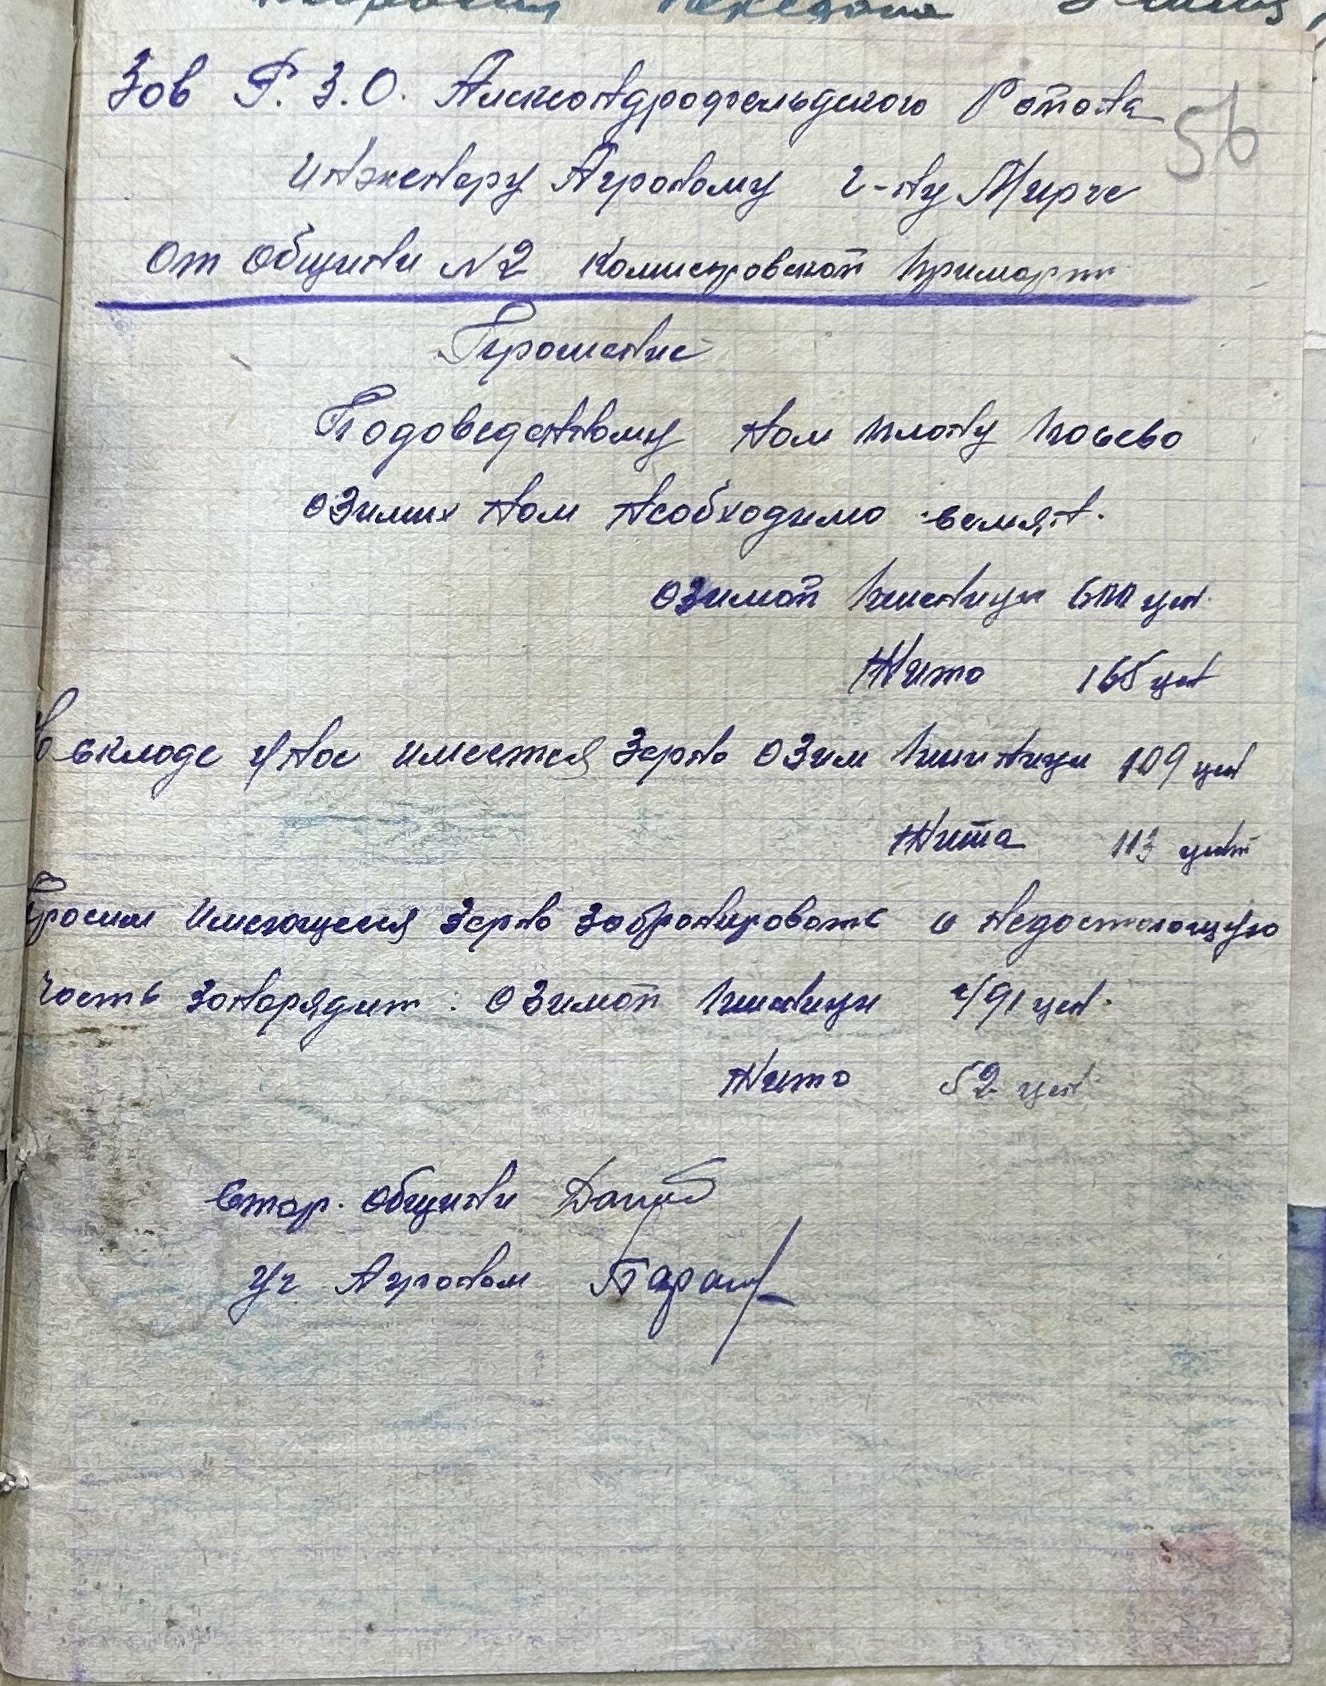 Зав Р.З.О. Александрофельдского Ратона
56
Инженеру Агроному г-ну Мирче
От Общини №2 Комисаровской примарии
Прошение
По доведенному нам плану посева
озимих нам необходимо семян.
Озимой пшеницы 600 цен.
Жито 165 цен
В складе у нас имеется зерна озим пшеницы 109 цен
Жита 113 цент
Просим имеющееся зерно забронировать а недостающую
часть занарядит: озимой пшеницы 491 цен.
Жито 52 цен.
Стар. общини
Уч Агроном